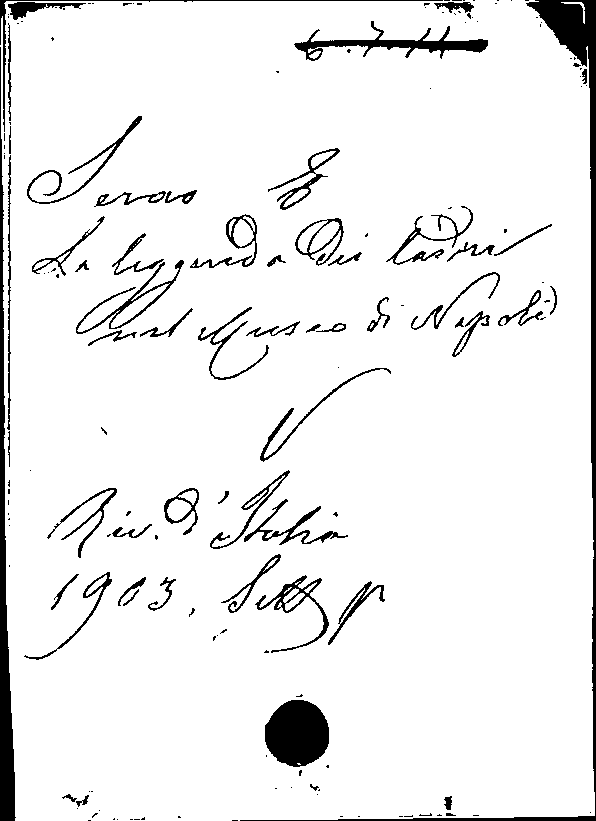 6.7.14
Serao E
La leggenda dei ladri
(nel Museo di Napoli)
Riv. d'Italia
1903, Sett p